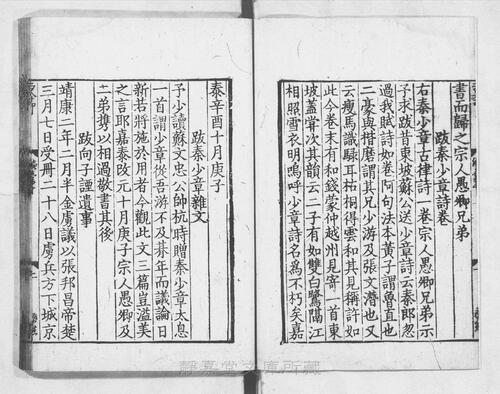 書而歸之宗人愚卿兄弟
跋秦少章詩卷
右秦少章古律詩一卷宗人愚卿兄弟示
予求跋昔東坡蘇公送少章詩云秦郎忽
過我賦詩如卷阿句法本黃子謂魯直也
二豪與揩磨謂其兄少游及張文潛也又
云瘦馬識騄耳枯桐得雲和其見稱許如
此今卷末有和錢蒙仲越州見寄一首東
坡蓋嘗次其韻云二子有如雙白鷺隔江
相照雪衣明嗚呼少章詩名為不朽矣嘉
泰辛酉十月庚子
跋秦少章雜文
予少讀蘇文忠公師杭時贈秦少章太息
一首謂少章從吾游不及朞年而議論日
新若將施於用者今觀此文三篇豈溢美
之言耶嘉泰改元十月庚子宗人愚卿及
二弟携以相過敬書其後
跋向子諲遺事
靖康二年二月半金虜議以張邦昌帝楚
三月七日受冊二十八日虜兵方下城京
靜嘉堂文庫所藏